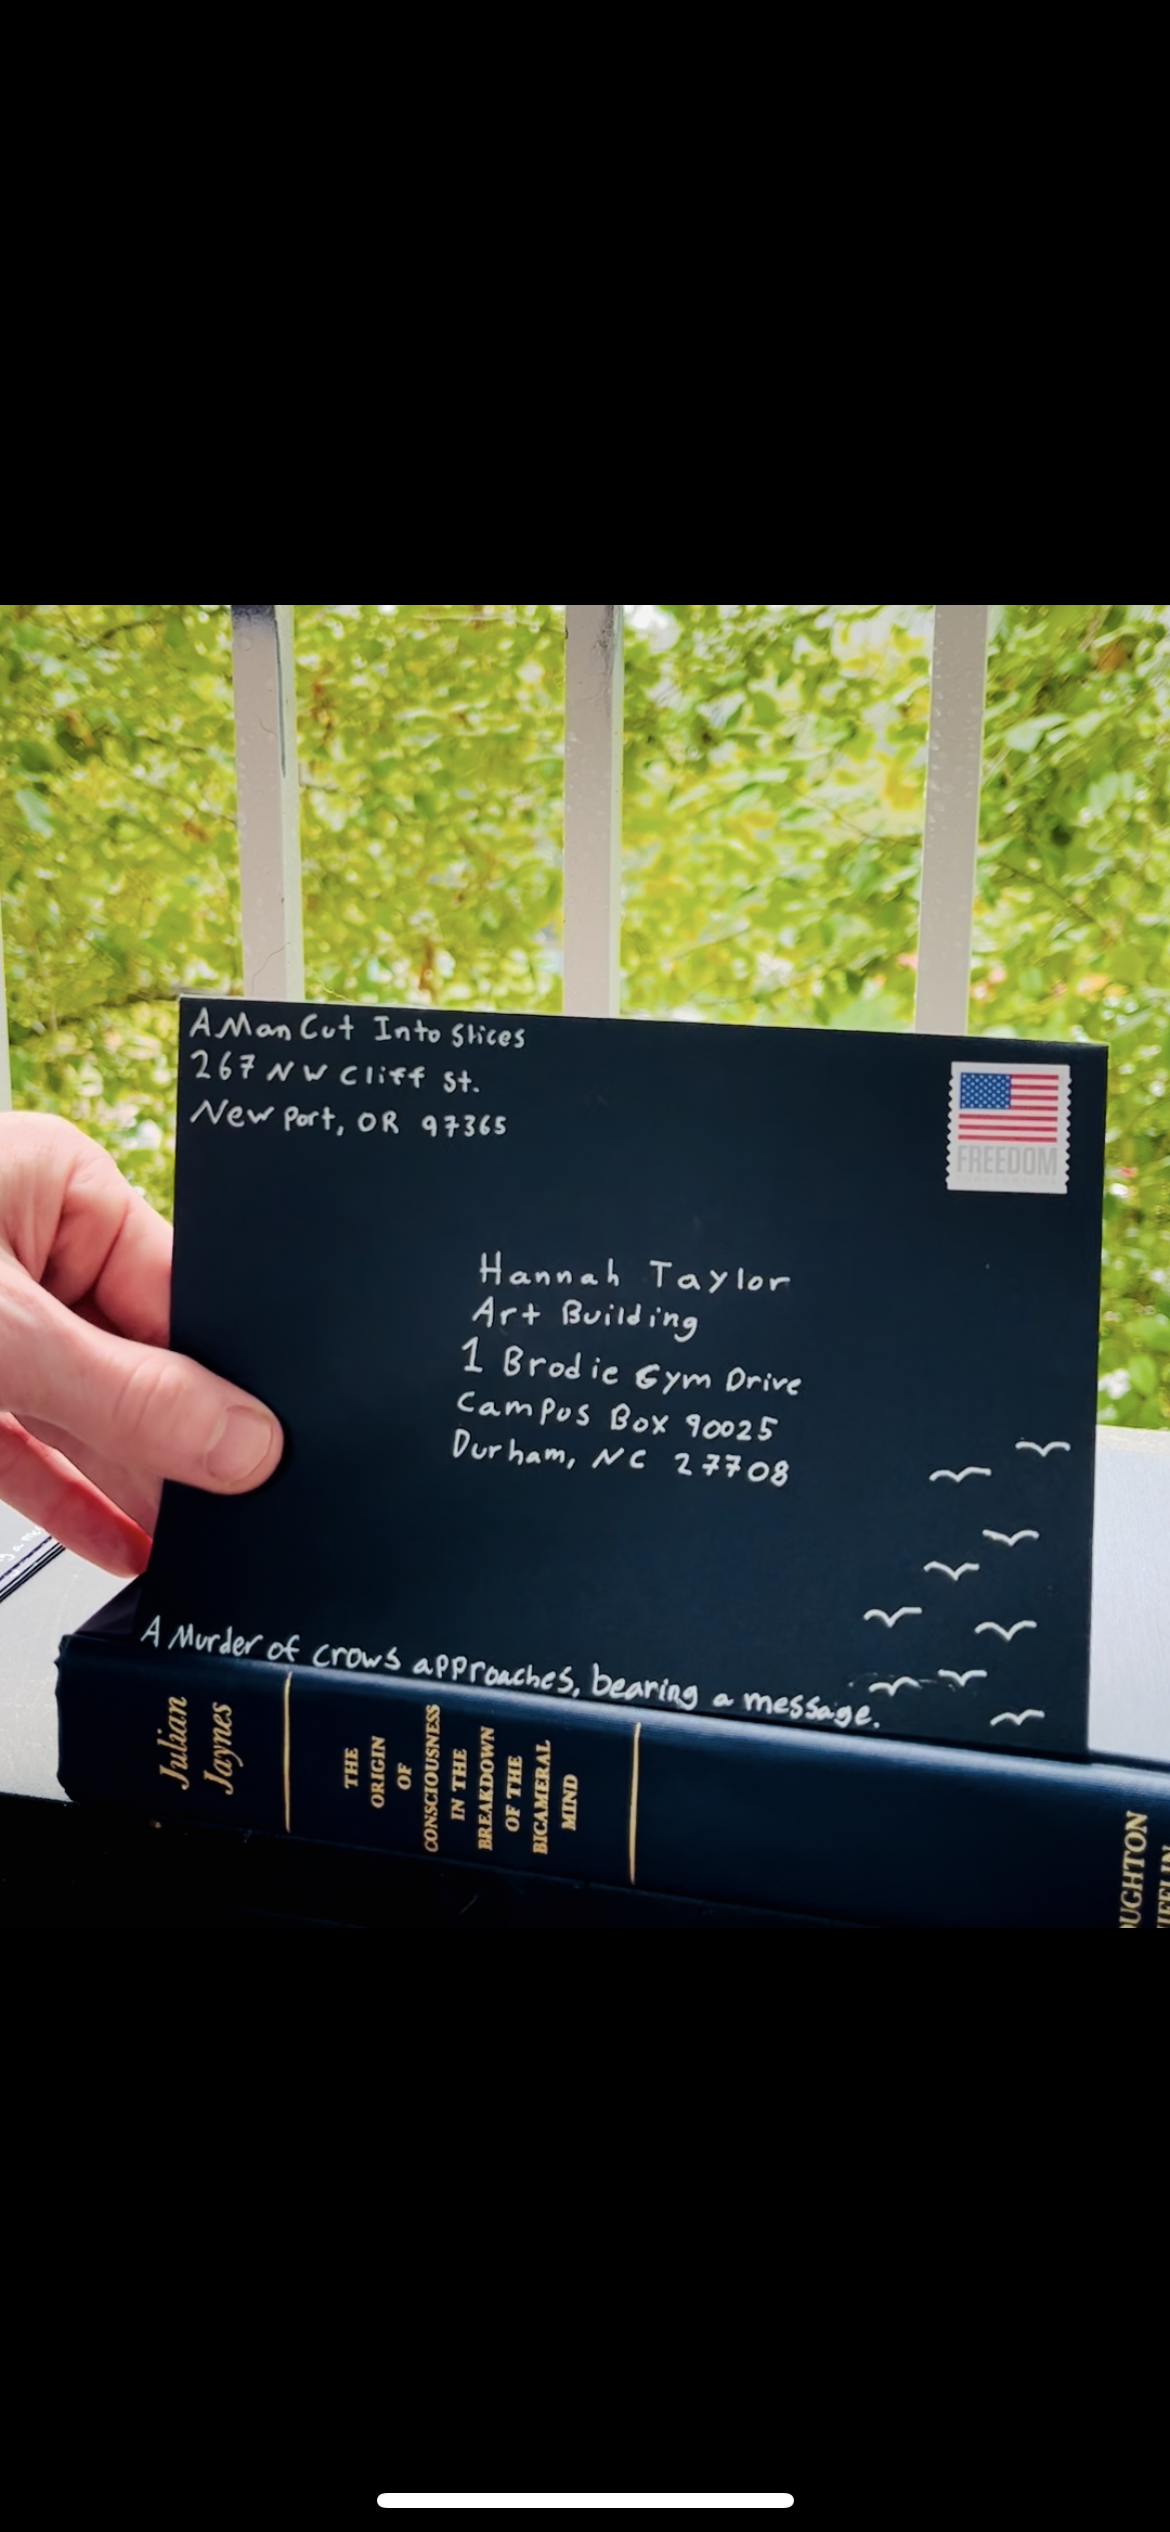 A Man Cut Into Slices
267 NW Cliff St.
New Port, OR 97365
FREEDOM
Hannah Taylor
Art Building
1 Brodie Gym Drive
Campus Box 90025
Durham, NC 27708
A Murder of crows approaches, bearing a message.
Julian
Jaynes
THE
ORIGIN
OF
CONSCIOUSNESS
IN THE
BREAKDOWN
OF THE
BICAMERAL
MIND